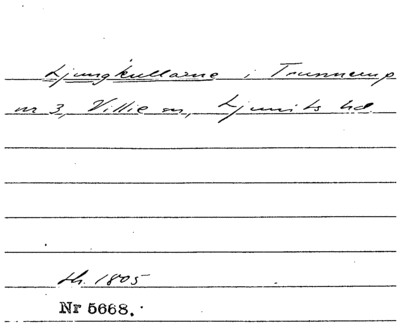 Ljungkullarne i Trunnerup
nr 3, Villie sn, Ljunits hd.
sk. 1805
Nr 5668.